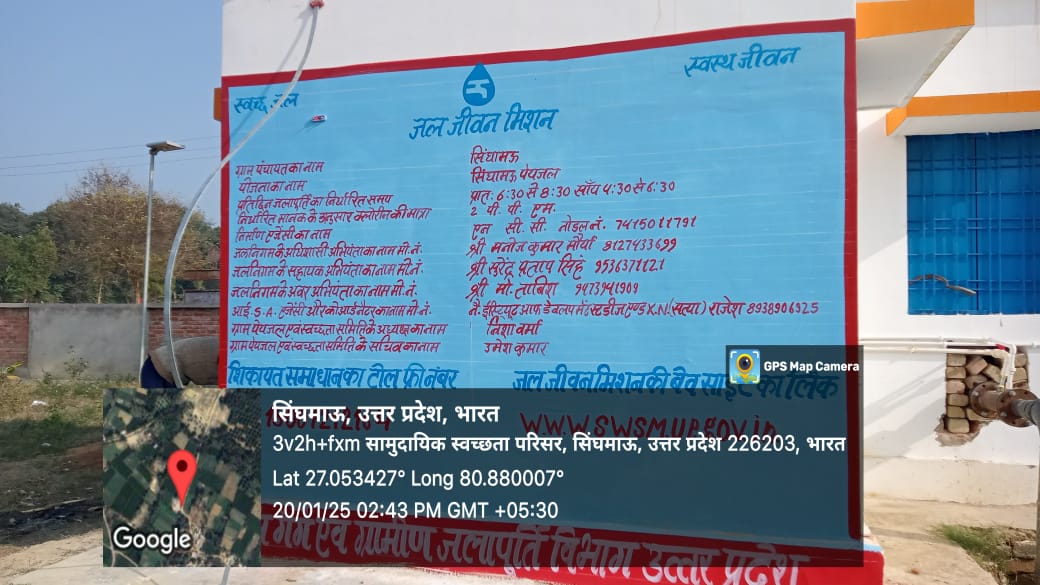 स्वच्छ जल
स्वस्थ जीवन
जल जीवन मिशन
ग्राम पंचायत का नाम सिंघामऊ
योजना का नाम सिंघामऊ पेयजल
प्रतिदिन जलापूर्ति का निर्धारित समय प्रातः 6:30 से 8:30 साँय 4:30 से 6:30
निर्धारित मानक के अनुसार क्लोरीन की मात्रा 2 पी. पी. एम.
निर्माण एजेंसी का नाम एन सी. सी. नोडल नं. 7415011791
जलनिगम के अधिशासी अभियंता का नाम मो. नं. श्री मनोज कुमार मौर्या 8127433699
जलनिगम के सहायक अभियंता का नाम मो. नं. श्री सुरेंद्र प्रताप सिंह 9536371121
जलनिगम के अवर अभियंता का नाम मो. नं. श्री मो. ताबिश 9473941909
आई. S. A. एजेंसी और को आर्डिनेटर का नाम मो. नं. नै. इंस्टिट्यूट आफ डेवलपमेंट स्टडीज एण्ड X.N. (सत्या) राजेश 8938906925
ग्राम पेयजल एवं स्वच्छता समिति के अध्यक्ष का नाम निशा वर्मा
ग्राम पेयजल एवं स्वच्छता समिति के सचिव का नाम उमेश कुमार
शिकायत समाधान का टोल फ्री नंबर
जल जीवन मिशन की वेव साईट का लिंक
www.swsmup.gov.in
एवं ग्रामीण जलापूर्ति विभाग उत्तर प्रदेश
GPS Map Camera
सिंघमाऊ, उत्तर प्रदेश, भारत
3v2h+fxm सामुदायिक स्वच्छता परिसर, सिंघमाऊ, उत्तर प्रदेश 226203, भारत
Lat 27.053427° Long 80.880007°
20/01/25 02:43 PM GMT +05:30
Google